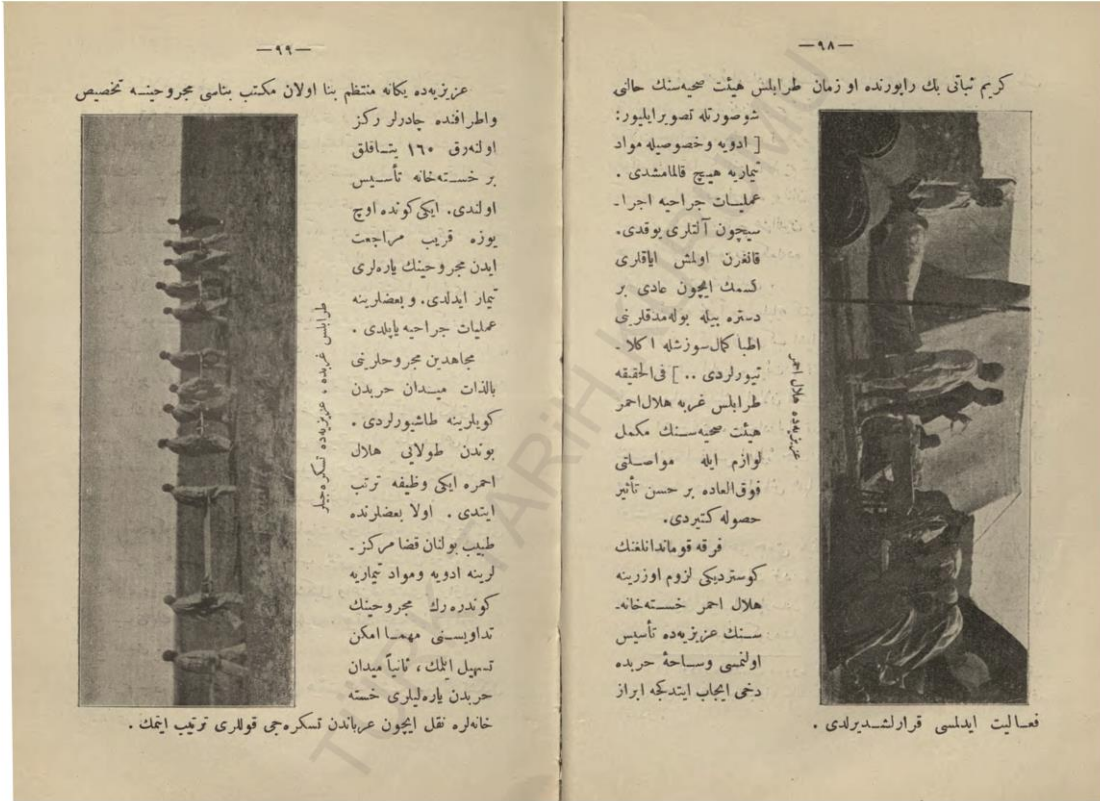 — ٩٨ —
كريم ثباتى بك راپورنده او زمان طرابلس هيئت صحيه‌سنك حالنى
شوصورتله تصوير ايليور:
[ ادويه وخصوصيله مواد
تيماريه هيچ قالمامشدى .
عمليات جراحيه اجرا ـ
سيچون آلتلرى يوقدى.
قانغرن اولمش اياقلرى
كسمك ايچون عادى بر
دستره بيله بوله‌مدقلرينى
اطبا كمال‌سوزشله اكلا ـ
تيورلردى .. ] فى‌الحقيقه
طرابلس غربه هلال‌احمر
هيئت صحيه‌سنك مكمل
لوازم ايله مواصلتى
فوق‌العاده بر حسن تأثير
حصوله كتيردى.
فرقه قوماندانلغنك
كوستردیكى لزوم اوزرينه
هلال احمر خسته‌خانه‌ـ
سنك عزيزيه‌ده تأسيس
اولنمسى وساحۀ حربده
دخى ايجاب ايتدكجه ابراز
فعاليت ايدلمسى قرارلشديرلدى .
عزيزيه‌ده هلال احمر
— ٩٩ —
عزيزيه‌ده يكانه منتظم بنا اولان مكتب بناسى مجروحينه تخصيص
واطرافنده چادرلر ركز
اولنه‌رق ١٦٠ يتاقلق
بر خسته‌خانه تأسيس
اولندى. ايكى كونده اوچ
يوزه قريب مراجعت
ايدن مجروحينك ياره‌لرى
تيمار ايدلدى. و بعضلرينه
عمليات جراحيه ياپلدى .
مجاهدين مجروحلرينى
بالذات ميدان حربدن
كويلرينه طاشيورلردى .
بوندن طولايى هلال
احمره ايكى وظيفه ترتب
ايتدى . اولا بعضلرنده
طبيب بولنان قضا مركز ـ
لرينه ادويه ومواد تيماريه
كوندره‌رك مجروحينك
تداويسنى مهما امكن
تسهيل ايلمك ، ثانياً ميدان
حربدن ياره‌ليلرى خسته
خانه‌لره نقل ايچون عرباندن تسكره‌جى قوللرى ترتيب ايتمك .
طرابلس غربده ، عزيزيه‌ده تسكره‌جيلر
TÜRK TARİH KURUMU